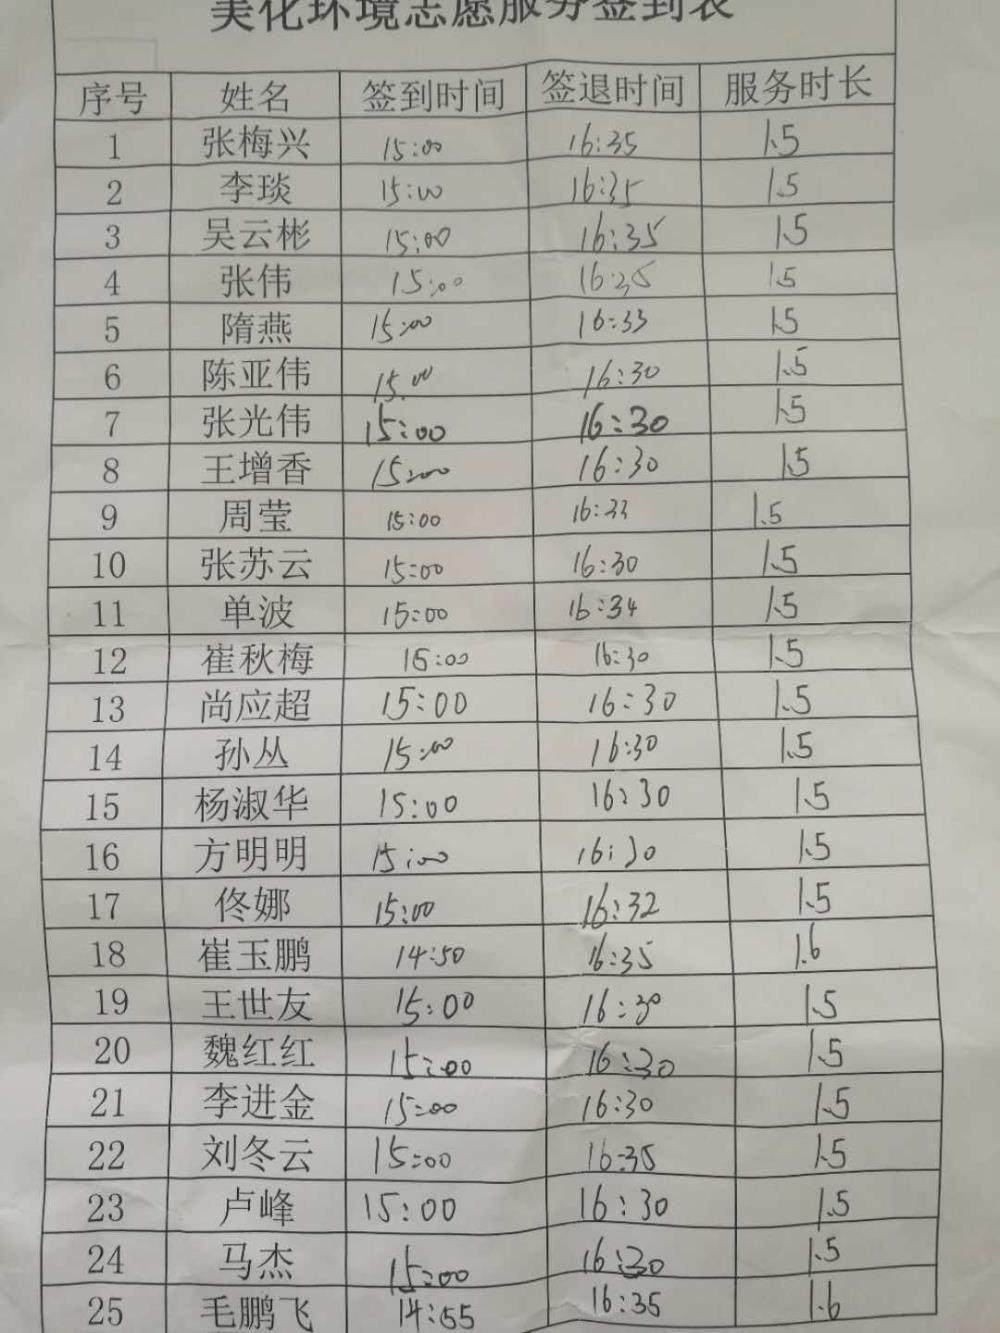 美化环境志愿服务签到表
序号 姓名 签到时间 签退时间 服务时长
1 张梅兴 15:00 16:35 1.5
2 李琰 15:00 16:35 1.5
3 吴云彬 15:00 16:35 1.5
4 张伟 15:00 16:35 1.5
5 隋燕 15:00 16:33 1.5
6 陈亚伟 15:00 16:30 1.5
7 张光伟 15:00 16:30 1.5
8 王增香 15:00 16:30 1.5
9 周莹 15:00 16:33 1.5
10 张苏云 15:00 16:30 1.5
11 单波 15:00 16:34 1.5
12 崔秋梅 15:00 16:30 1.5
13 尚应超 15:00 16:30 1.5
14 孙丛 15:00 16:30 1.5
15 杨淑华 15:00 16:30 1.5
16 方明明 15:00 16:30 1.5
17 佟娜 15:00 16:32 1.5
18 崔玉鹏 14:50 16:35 1.6
19 王世友 15:00 16:30 1.5
20 魏红红 15:00 16:30 1.5
21 李进金 15:00 16:30 1.5
22 刘冬云 15:00 16:35 1.5
23 卢峰 15:00 16:30 1.5
24 马杰 15:00 16:30 1.5
25 毛鹏飞 14:55 16:35 1.6